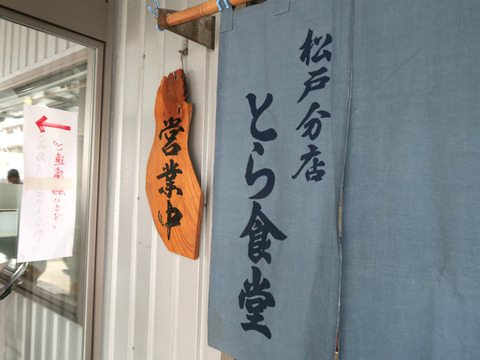 松戸分店
とら食堂
営業中